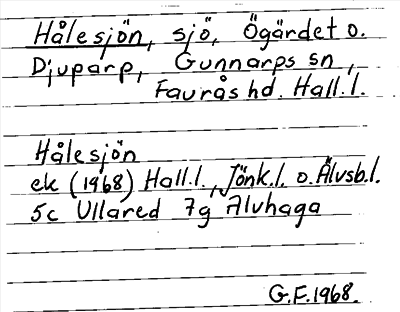 Hålesjön, sjö, Ögärdet o.
Djuparp, Gunnarps sn,
Faurås hd. Hall.l.
Hålesjön
ek (1968) Hall.l., Jönk.l. o. Älvsb.l.
5c Ullared 7g Älvhaga
G.F.1968.